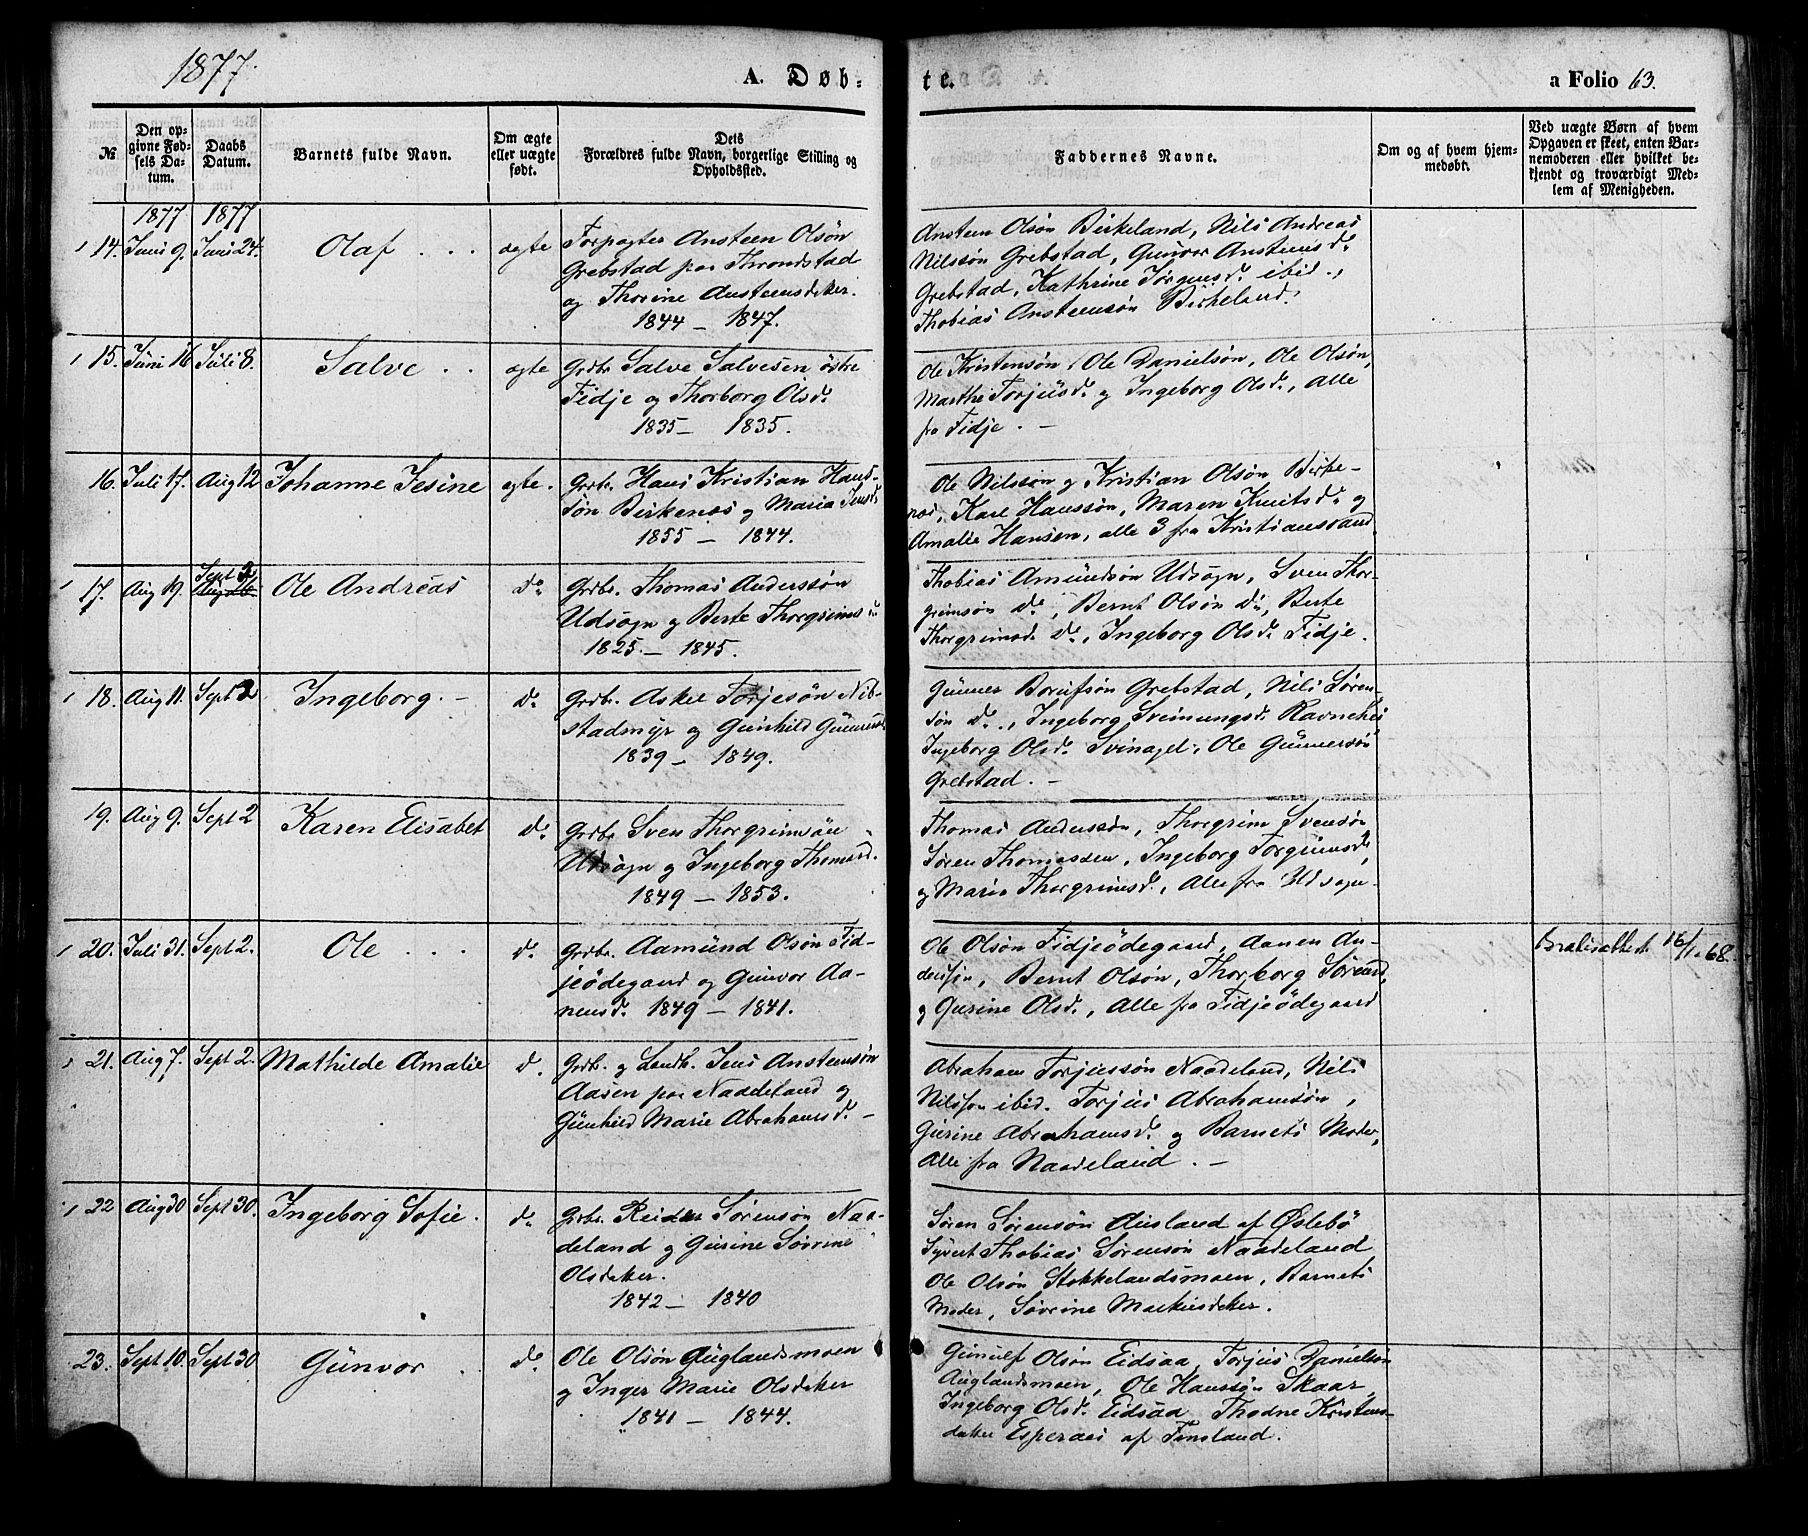 1877.
A. Døb-
te.
a Folio 63.
№
Den op-
givne Fød-
sels Da-
tum.
Daabs
Datum.
Barnets fulde Navn.
Om ægte
eller uægte
født.
Dets
Forældres fulde Navn, borgerlige Stilling og
Opholdssted.
Faddernes Navne.
Om og af hvem hjem-
medøbt.
Ved uægte Børn af hvem
Opgaven er skeet, enten Bar-
nemoderen eller hvilket be-
kjendt og troværdigt Med-
lem af Menigheden.
1877 1877
14. Juni 9. Juni 24. Olaf ægte
Forpagter Ansteen Olsön
Grebstad paa Throndstad
og Thorine Ansteensdatter.
1844 - 1847.
Ansteen Olsön Birkeland, Nils Andreas
Nilssön Grebstad, Gunvor Ansteensd.
Grebstad, Kathrine Jörgensd. ibid.,
Thobias Ansteensön Birkeland.
15. Juni 16 Juli 8. Salve ægte
Grdbr. Salve Salvesen östre
Fidje og Thorborg Olsd.
1835 - 1835.
Ole Kristensön, Ole Danielsön, Ole Olsön,
Marthe Torjusd. og Ingeborg Olsd., Alle
fra Fidje. -
16. Juli 17. Aug 12 Johanne Jesine ægte.
Grdbr. Hans Kristian Hans-
sön Birkenes og Maria Jensd.
1855 - 1844.
Ole Nilssön og Kristian Olsön Birke-
nes, Karl Hanssön, Maren Knutsd. og
Amalie Hansen, alle 3 fra Kristianssand
17. Aug 19. Sept 2 Ole Andreas do
Grdbr. Thomas Anderssön
Udsogn og Berte Thorgrimsd.
1825 - 1845.
Thobias Amundsön Udsogn, Sven Thor-
grimsön do, Bernt Olsön do, Berte
Thorgrimsd. do, Ingeborg Olsd. Fidje.
18. Aug 11. Sept 2 Ingeborg. - do
Grdbr. Askel Torjesön Nib-
stadmyr og Gunhild Gunnersd.
1839 - 1849.
Gunner Borufsön Grebstad, Nils Sören-
sön do., Ingeborg Sveinungsd. Ravnehei
Ingeborg Olsd. Svinagel, Ole Gunnersön
Grebstad. -
19. Aug 9. Sept 2 Karen Elisabet do
Grdbr. Sven Thorgrimsön
Udsogn og Ingeborg Thomasd.
1849 - 1853.
Thomas Anderssön, Thorgrim Svensön
Sören Thomassen, Ingeborg Torgrimsd.
og Maria Thorgrimsd., Alle fra Udsogn.
20. Juli 31. Sept 2. Ole do
Grdbr. Aamund Olsön Fid-
jeödegaard og Gunvor Aa-
nensd. 1849 - 1841.
Ole Olsön Fidjeödegaard, Aanen An-
derssön, Bernt Olsön, Thorborg Sörensd.
og Gurine Olsd., Alle fra Fidjeödegaard
16/1.68.
21. Aug 7. Sept 2. Mathilde Amalie do
Grdbr. og Landh. Jens Ansteensön
Aasen paa Naadeland og
Gunhild Marie Abrahamsd. -
Abraham Torjussön Naadeland, Nils
Nilsson ibid. Torjus Abrahamsön,
Gurine Abrahamsd. og Barnets Moder,
Alle fra Naadeland. -
22 Aug 30 Sept 30. Ingeborg Sofie. do
Grdbr. Reider Sörensön Naa-
deland og Gurine Sövrine
Olsdatter.
1842 - 1840
Sören Sörensön Ausland af Öslebö
Syvert Thobias Sörensön Naadeland
Ole Olsön Stokkelandsmoen, Barnets
Moder, Sövrine Markusdatter.
23. Sept 10. Sept 30 Gunvor do
Ole Olsön Auglandsmoen
og Inger Marie Olsdatter
1841 - 1844.
Gunulf Olsön Eidsaa, Torjus Danielsön
Auglandsmoen, Ole Hanssön Skaar,
Ingeborg Olsd. Eidsaa Thodne Kristens-
datter Esperaas af Finsland.